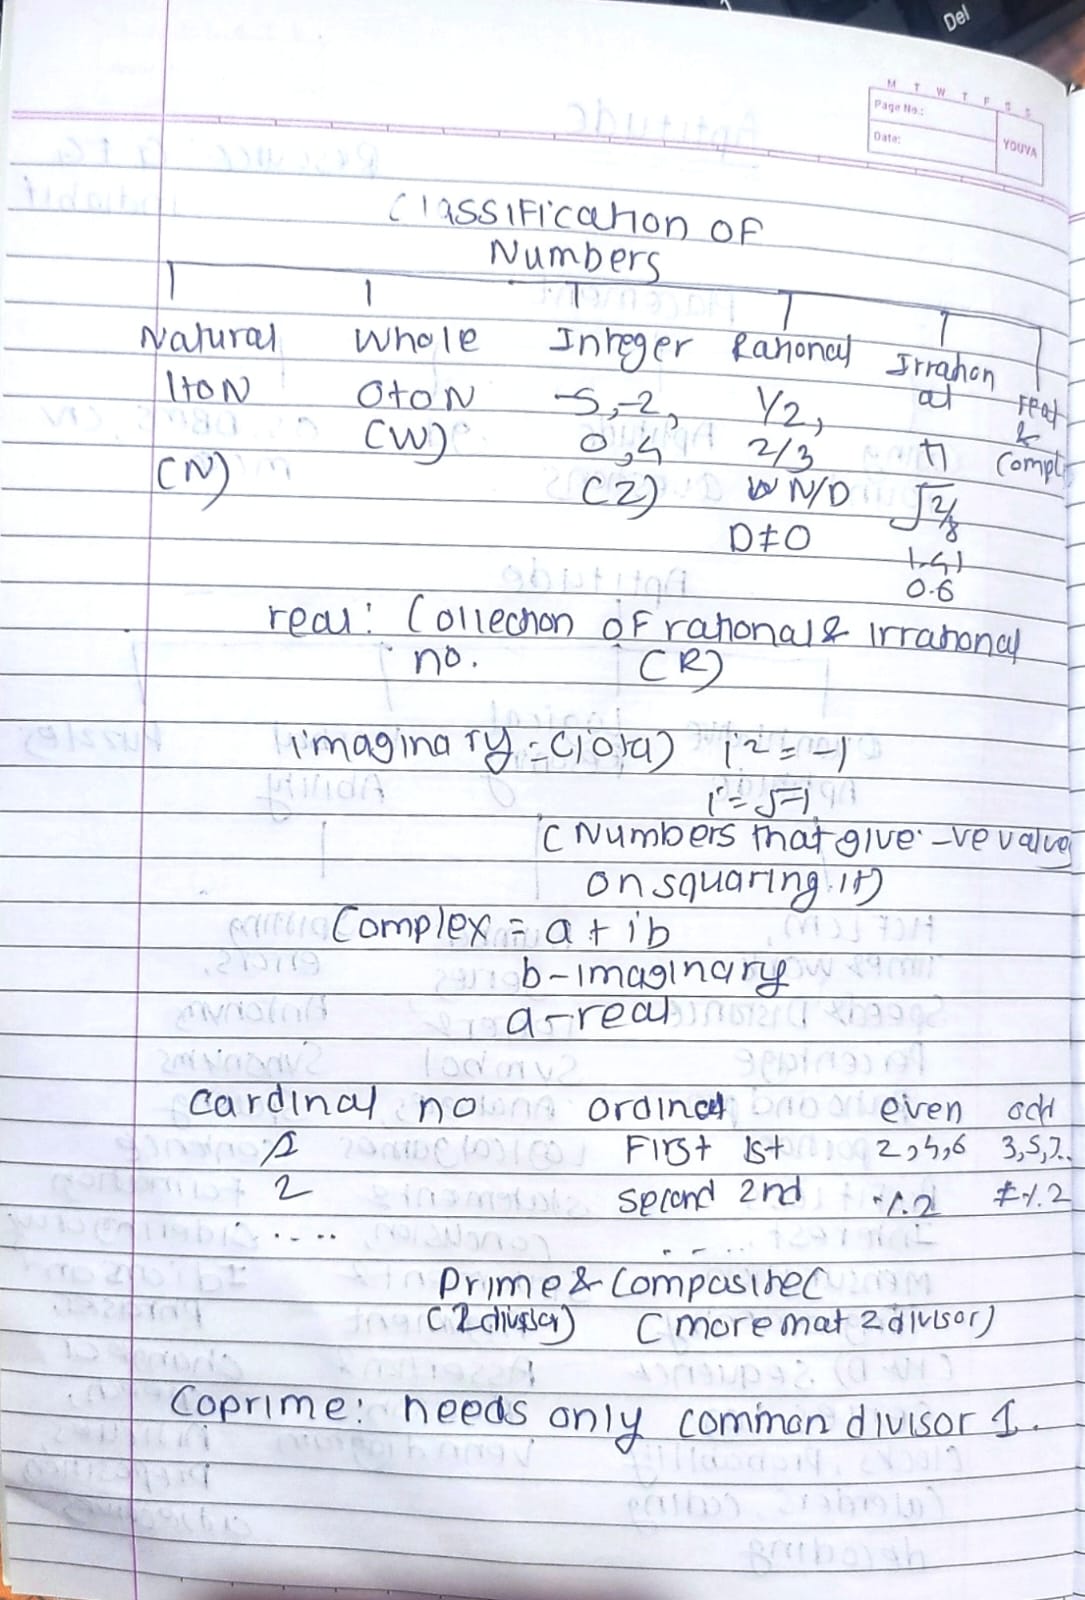 Del
M T W T F S S
Page No.:
Date:
YOUVA
Classification of
Numbers
Natural Whole Integer Rational Irration
al real
&
Compl
1 to N 0 to N -5, -2, 1/2,
(W) 0, 4 2/3 π
(N) (Z) N/D √2/8
D≠0 1.41
0.6
real: Collection of rational & irrational
no. (R)
imaginary = (iota) i2 = -1
i = √-1
(Numbers that give -ve value
on squaring it)
Complex = a + ib
b - imaginary
a - real
Cardinal no ordinal even odd
1 First 1st 2,4,6 3,5,7..
2 second 2nd %2 ≠%2
.... ....
Prime & Composite(
(2 divisor) (more that 2 divisor)
Coprime: needs only common divisor 1.